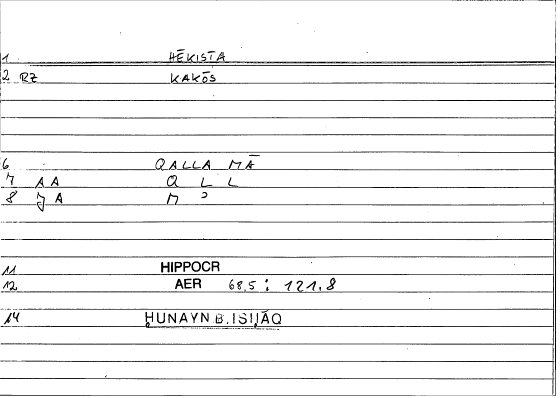 1 HĒKISTA
2 RZ KAKŌS
6 QALLA MĀ
7 AA Q L L
8 JA M ʾ
11 HIPPOCR
12 AER 68,5 : 121,8
14 ḤUNAYN B. ISḤĀQ